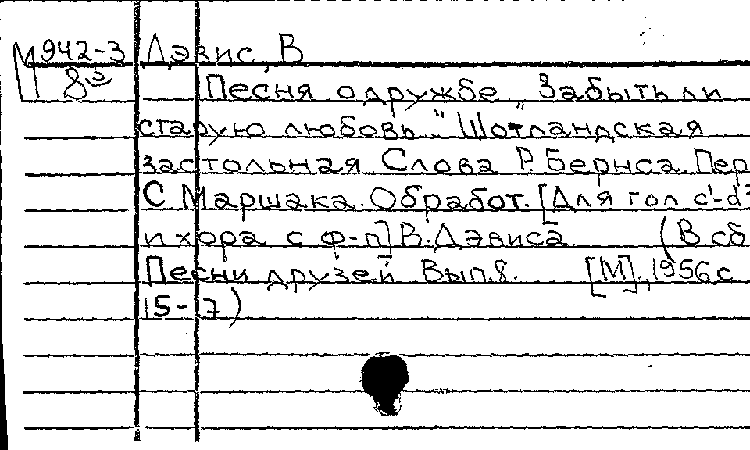 М 942-3 Дэвис, В
8² Песня о дружбе „Забыть ли
старую любовь" Шотландская
застольная Слова Р. Бернса. Пер
С Маршака. Обработ. [Для гол c'-d²
и хора с ф-п] В. Дэвиса (В сб
Песни друзей Вып. 8. [М]., 1956 с
15-17)